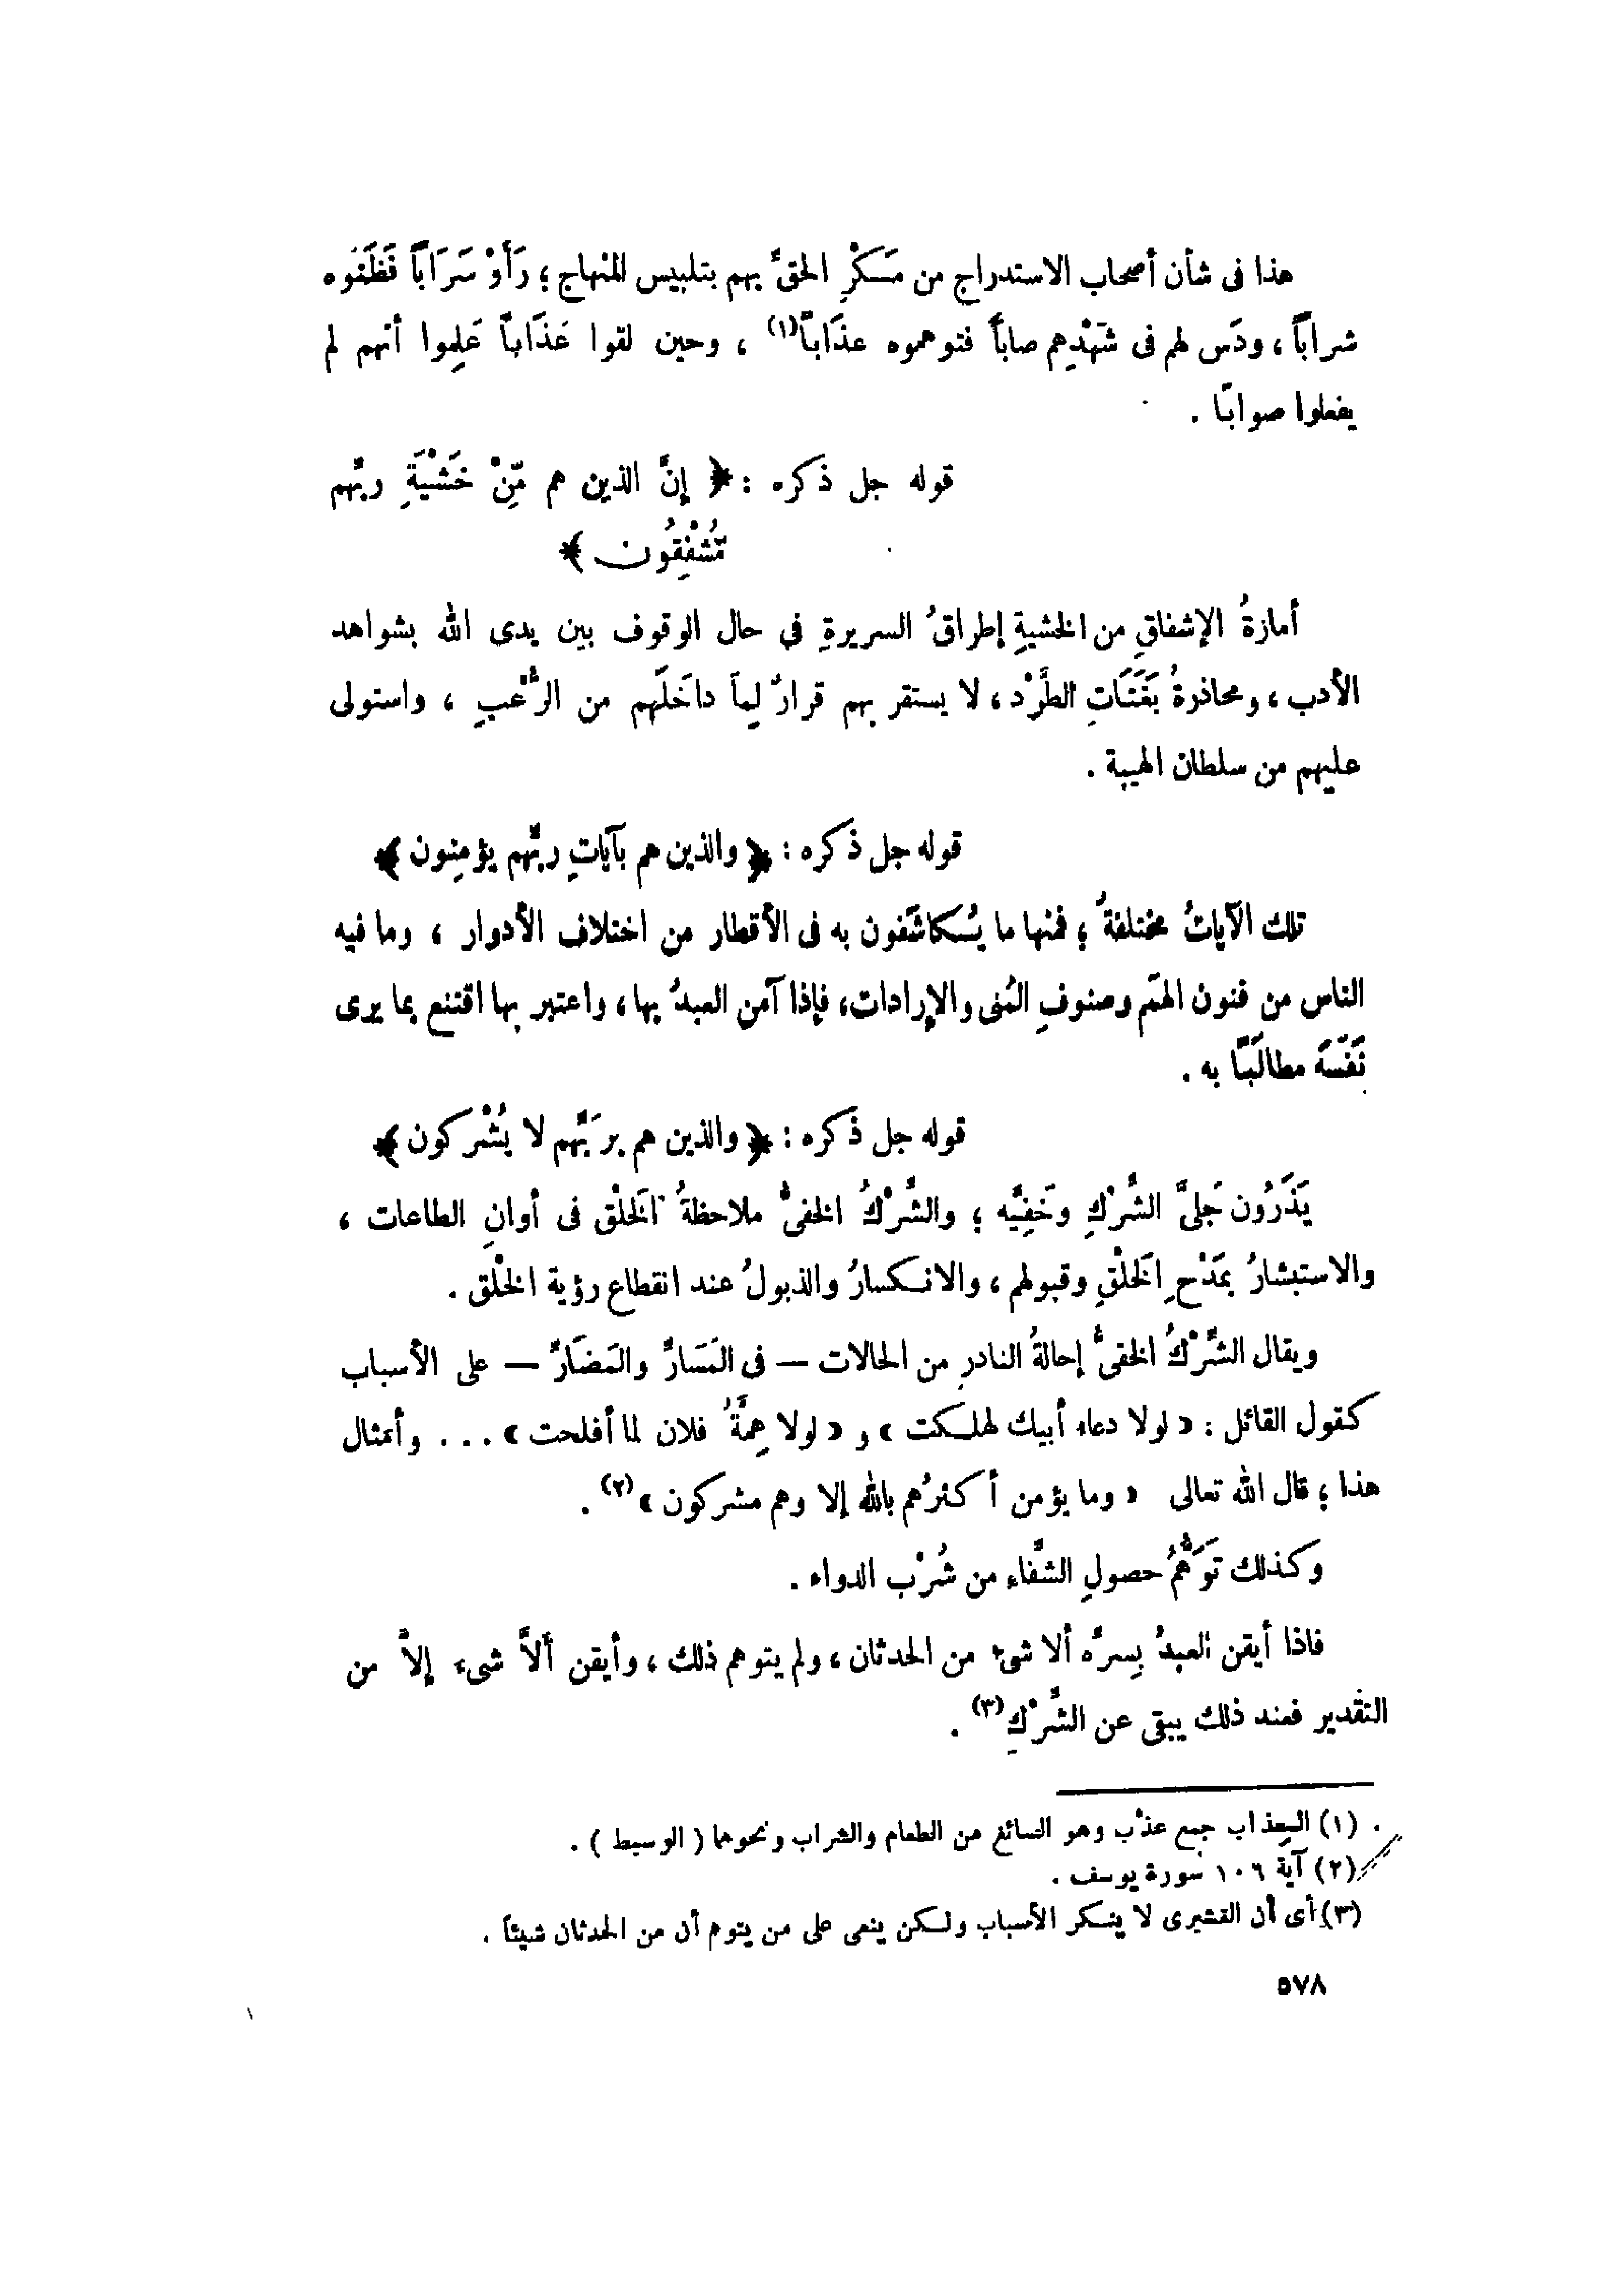 هذا فى شأن أصحاب الاستدراج من مَكْرِ الحقِّ بهم بتلبيس المنهاج ؛ رَأَوْا سَرَاباً فَظَنُّوه
شراباً ، ودَس لهم فى شَهْدِهم صاباً فتوهموه عذَاباً(١) ، وحين لقوا عَذَاباً عَلِموا أنهم لم
يفعلوا صوابًا .
قوله جل ذكره : ﴿ إنَّ الذين هم مِّنْ خَشْيَةِ ربِّهم
مُّشْفِقُون ﴾
أمارَةُ الإشفاقِ من الخشيةِ إطراقُ السريرةِ فى حال الوقوف بين يدى الله بشواهد
الأدب ، ومحاذرةُ بَغَتَاتِ الطَّرْد ، لا يستقر بهم قرارٌ لِما داخَلَهم من الرُّعْبِ ، واستولى
عليهم من سلطان الهيبة .
قوله جل ذكره : ﴿ والذين هم بآياتِ ربِّهم يؤمِنون ﴾
تلك الآياتُ مختلفةٌ ؛ فمنها ما يُكاشَفون به فى الأقطار من اختلاف الأدوار ، وما فيه
الناس من فنون الهمَم وصنوفِ المُنى والإرادات، فإذا آمن العبدُ بها ، واعتبر بها اقتنع بما يرى
نَفْسَه مطالَبًا به .
قوله جل ذكره : ﴿ والذين هم بربِّهم لا يُشْركون ﴾
يَذَرُون جَلِىَّ الشِّرْكِ وخَفِيَّه ؛ والشِّرْكُ الخفىُّ ملاحظةُ الخَلْق فى أوانِ الطاعات ،
والاستبشارُ بمَدْحِ الخَلْقِ وقبولهم ، والانكسارُ والذبولُ عند انقطاع رؤية الخْلق .
ويقال الشِّرْكُ الخفىُّ إحالةُ النادرِ من الحالات — فى المَسَارِّ والمَضَارِّ — على الأسباب
كقول القائل : « لولا دعاء أبيك لهلكت » و « لولا هِمَّةُ فلان لما أفلحت » ... وأمثال
هذا ؛ قال الله تعالى « وما يؤمن أكثرُهم بالله إلا وهم مشركون »(٢) .
وكذلك تَوَهُّمُ حصولِ الشِّفاءِ من شُرْب الدواء .
فاذا أيقن العبدُ بِسرِّه ألا شىء من الحدثان ، ولم يتوهم ذلك ، وأيقن ألاَّ شىء إلاَّ من
التقدير فعند ذلك يبقى عن الشِّرْكِ(٣) .
(١) العِذاب جمع عذْب وهو السائغ من الطعام والشراب ونحوهما ( الوسيط ) .
(٢) آية ١٠٦ سورة يوسف .
(٣) أى أن القشيرى لا ينكر الأسباب ولكن ينعى على من يتوهم أن من الحدثان شيئاً .
٥٧٨